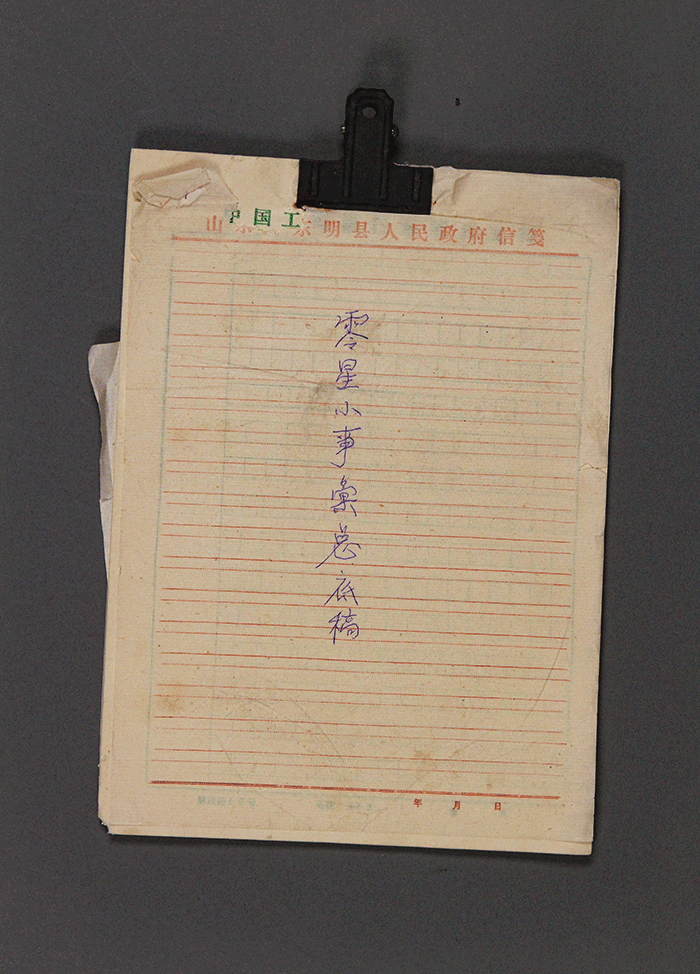 中国工
山东 东明县人民政府信笺
零星小事彙总底稿
年 月 日